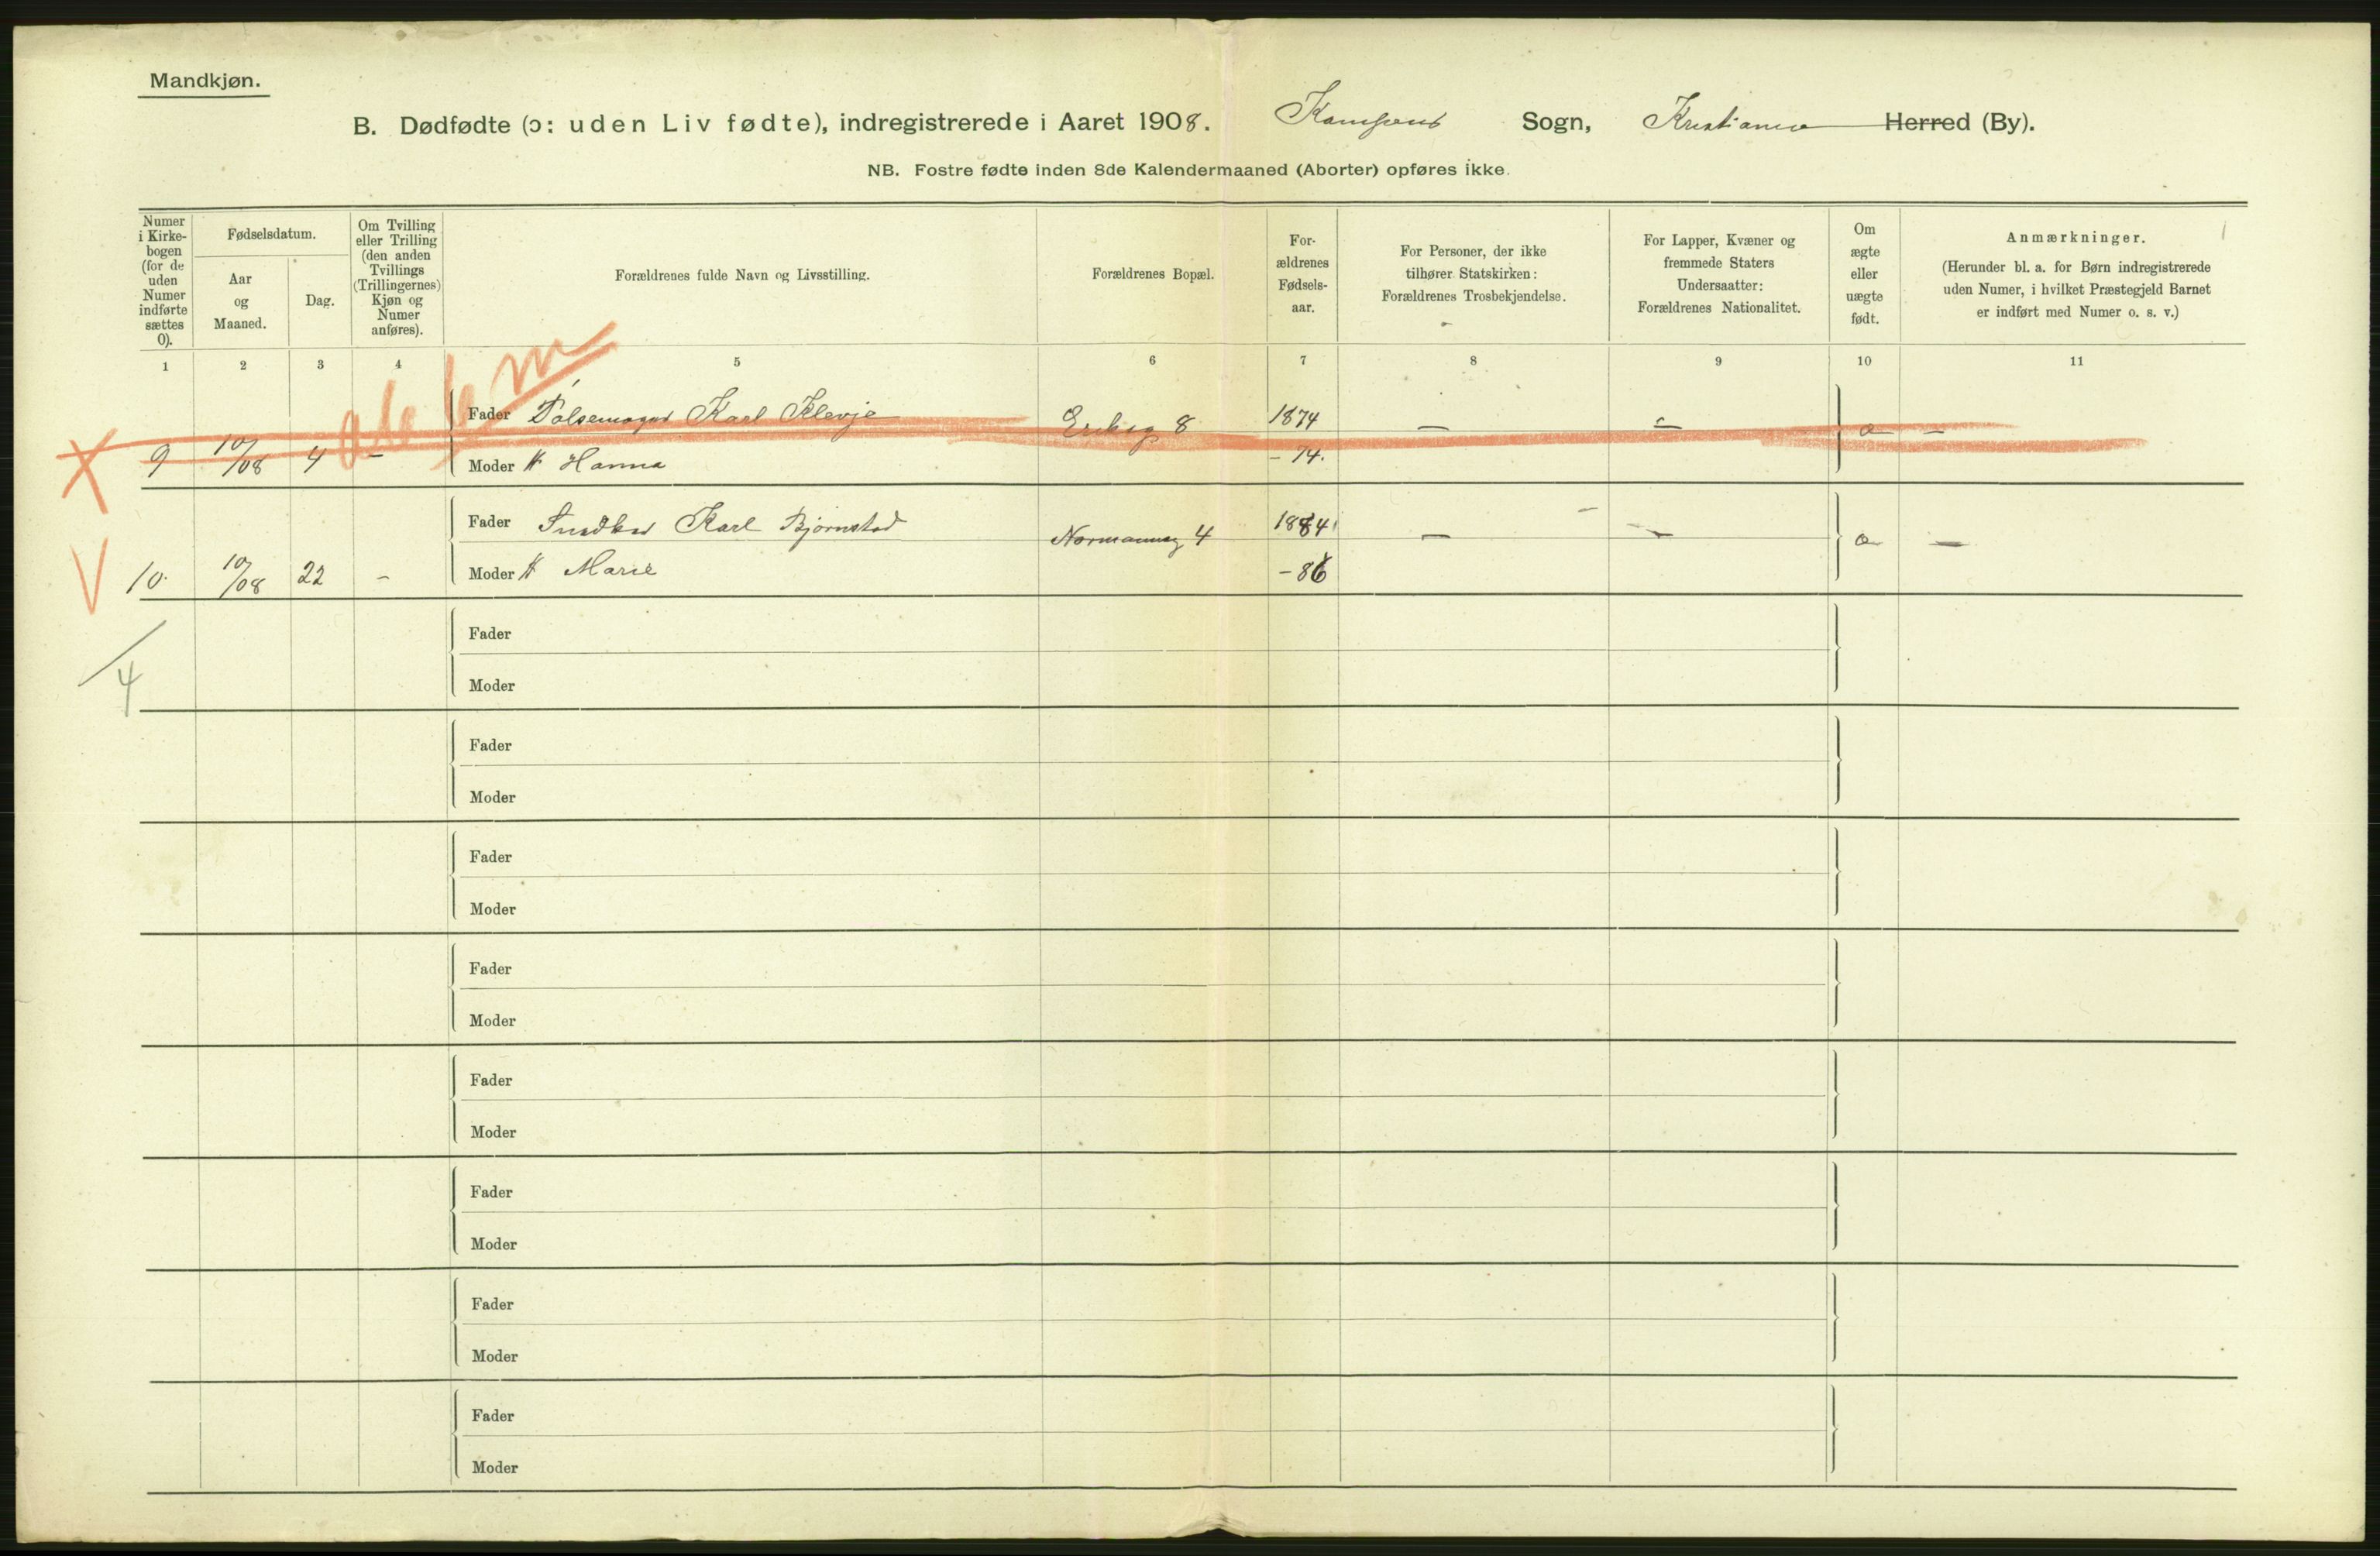 Mandkjøn.
B. Dødfødte (ɔ: uden Liv fødte), indregistrerede i Aaret 1908. Kampens Sogn, Kristiania Herred (By).
NB. Fostre fødte inden 8de Kalendermaaned (Aborter) opføres ikke.
Numer
i Kirke-
bogen
(for de
uden
Numer
indførte
sættes
0).
Fødselsdatum.
Aar
og
Maaned.
Dag.
Om Tvilling
eller Trilling
(den anden
Tvillings
(Trillingernes)
Kjøn og
Numer
anføres).
Forældrenes fulde Navn og Livsstilling.
Forældrenes Bopæl.
For-
ældrenes
Fødsels-
aar.
For Personer, der ikke
tilhører Statskirken:
Forældrenes Trosbekjendelse.
For Lapper, Kvæner og
fremmede Staters
Undersaatter:
Forældrenes Nationalitet.
Om
ægte
eller
uægte
født.
Anmærkninger.
(Herunder bl. a. for Børn indregistrerede
uden Numer, i hvilket Præstegjeld Barnet
er indført med Numer o. s. v.)
1 2 3 4 5 6 7 8 9 10 11
Fader Pølsemager Karl Klevje 8 1874 — — —
9 10/08 4 — Moder H Hanna – 74.
Fader Snedker Karl Bjørnstad Normannsg 4 1884 — — —
10. 10/08 22 – Moder H Marie – 86
4
Fader
Moder
Fader
Moder
Fader
Moder
Fader
Moder
Fader
Moder
Fader
Moder
Fader
Moder
Fader
Moder